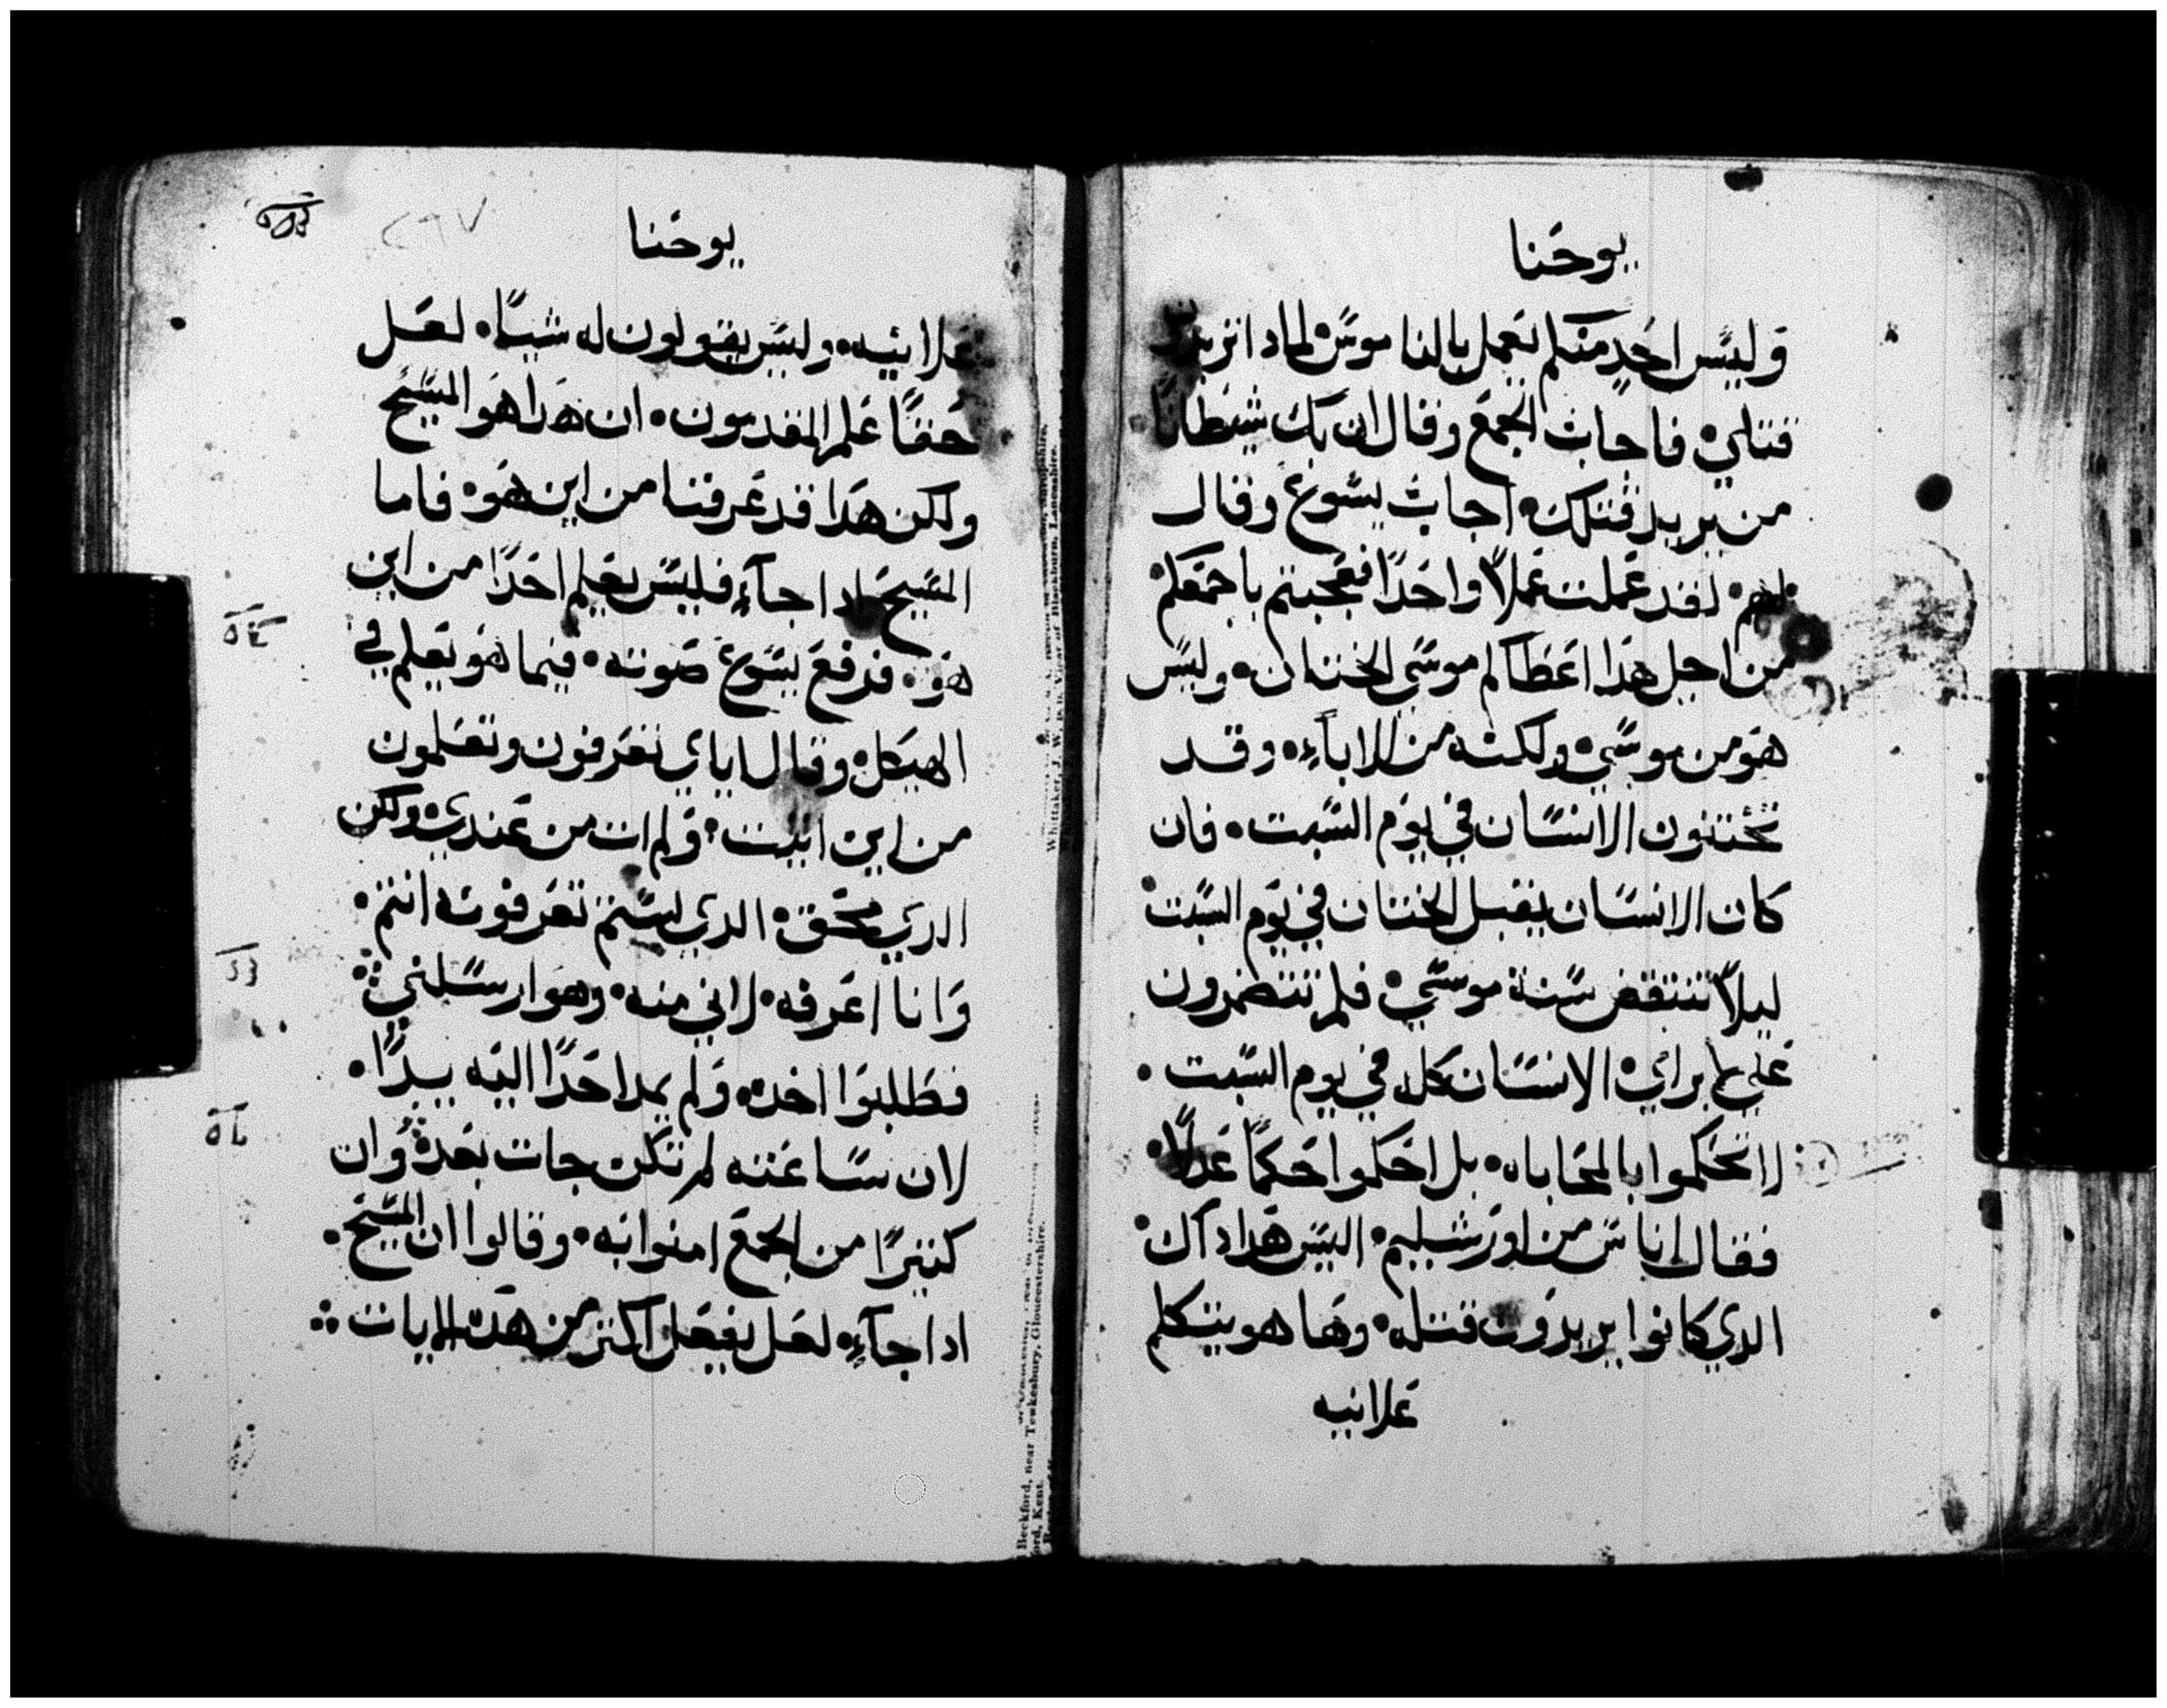 يوحنا
وليس احد منكم يعمل بالناموس لمادا تريدون
قتلي فاجاب الجمع وقال ان بك شيطانا
من يريد قتلك اجاب يسوع وقال
لهم لقد عملت عملا واحدا فعجبتم باجمعكم
من اجل هدا اعطاكم موسى الختان وليس
هو من موسى ولكنه من الاباء وقد
تختتنون الانسان في يوم السبت فان
كان الانسان يقبل الختان في يوم السبت
ليلا تنتقض سنة موسى فلم تتضمرون
على ابراي الانسان كله في يوم السبت
لا تحكموا بالمحاباه بل احكموا حكما عدلا
فقال اناس من اورشليم اليس هدا داك
الدي كانوا يريدون قتله وها هو يتكلم
علانيه
يوحنا
علانيه وليس يقولون له شيا لعل
حقا علم المقدمون ان هدا هو المسيح
ولكن هدا قد عرفنا من اين هو فاما
المسيح ادا جاء فليس يعلم احدا من اين
هو فرفع يسوع صوته فيما هو يعلم في
الهيكل وقال اياي تعرفون وتعلمون
من اين اتيت ولم ات من عندي ولكن
الدي محق الدي لستم تعرفونه انتم
وانا اعرفه لاني منه وهو ارسلني
فطلبوا اخده ولم يمد احدا اليه يدا
لان ساعته لم تكن جات بعد وان
كتيرا من الجمع امنوا به وقالوا ان المسيح
ادا جاء لعل يفعل اكتر من هده الايات